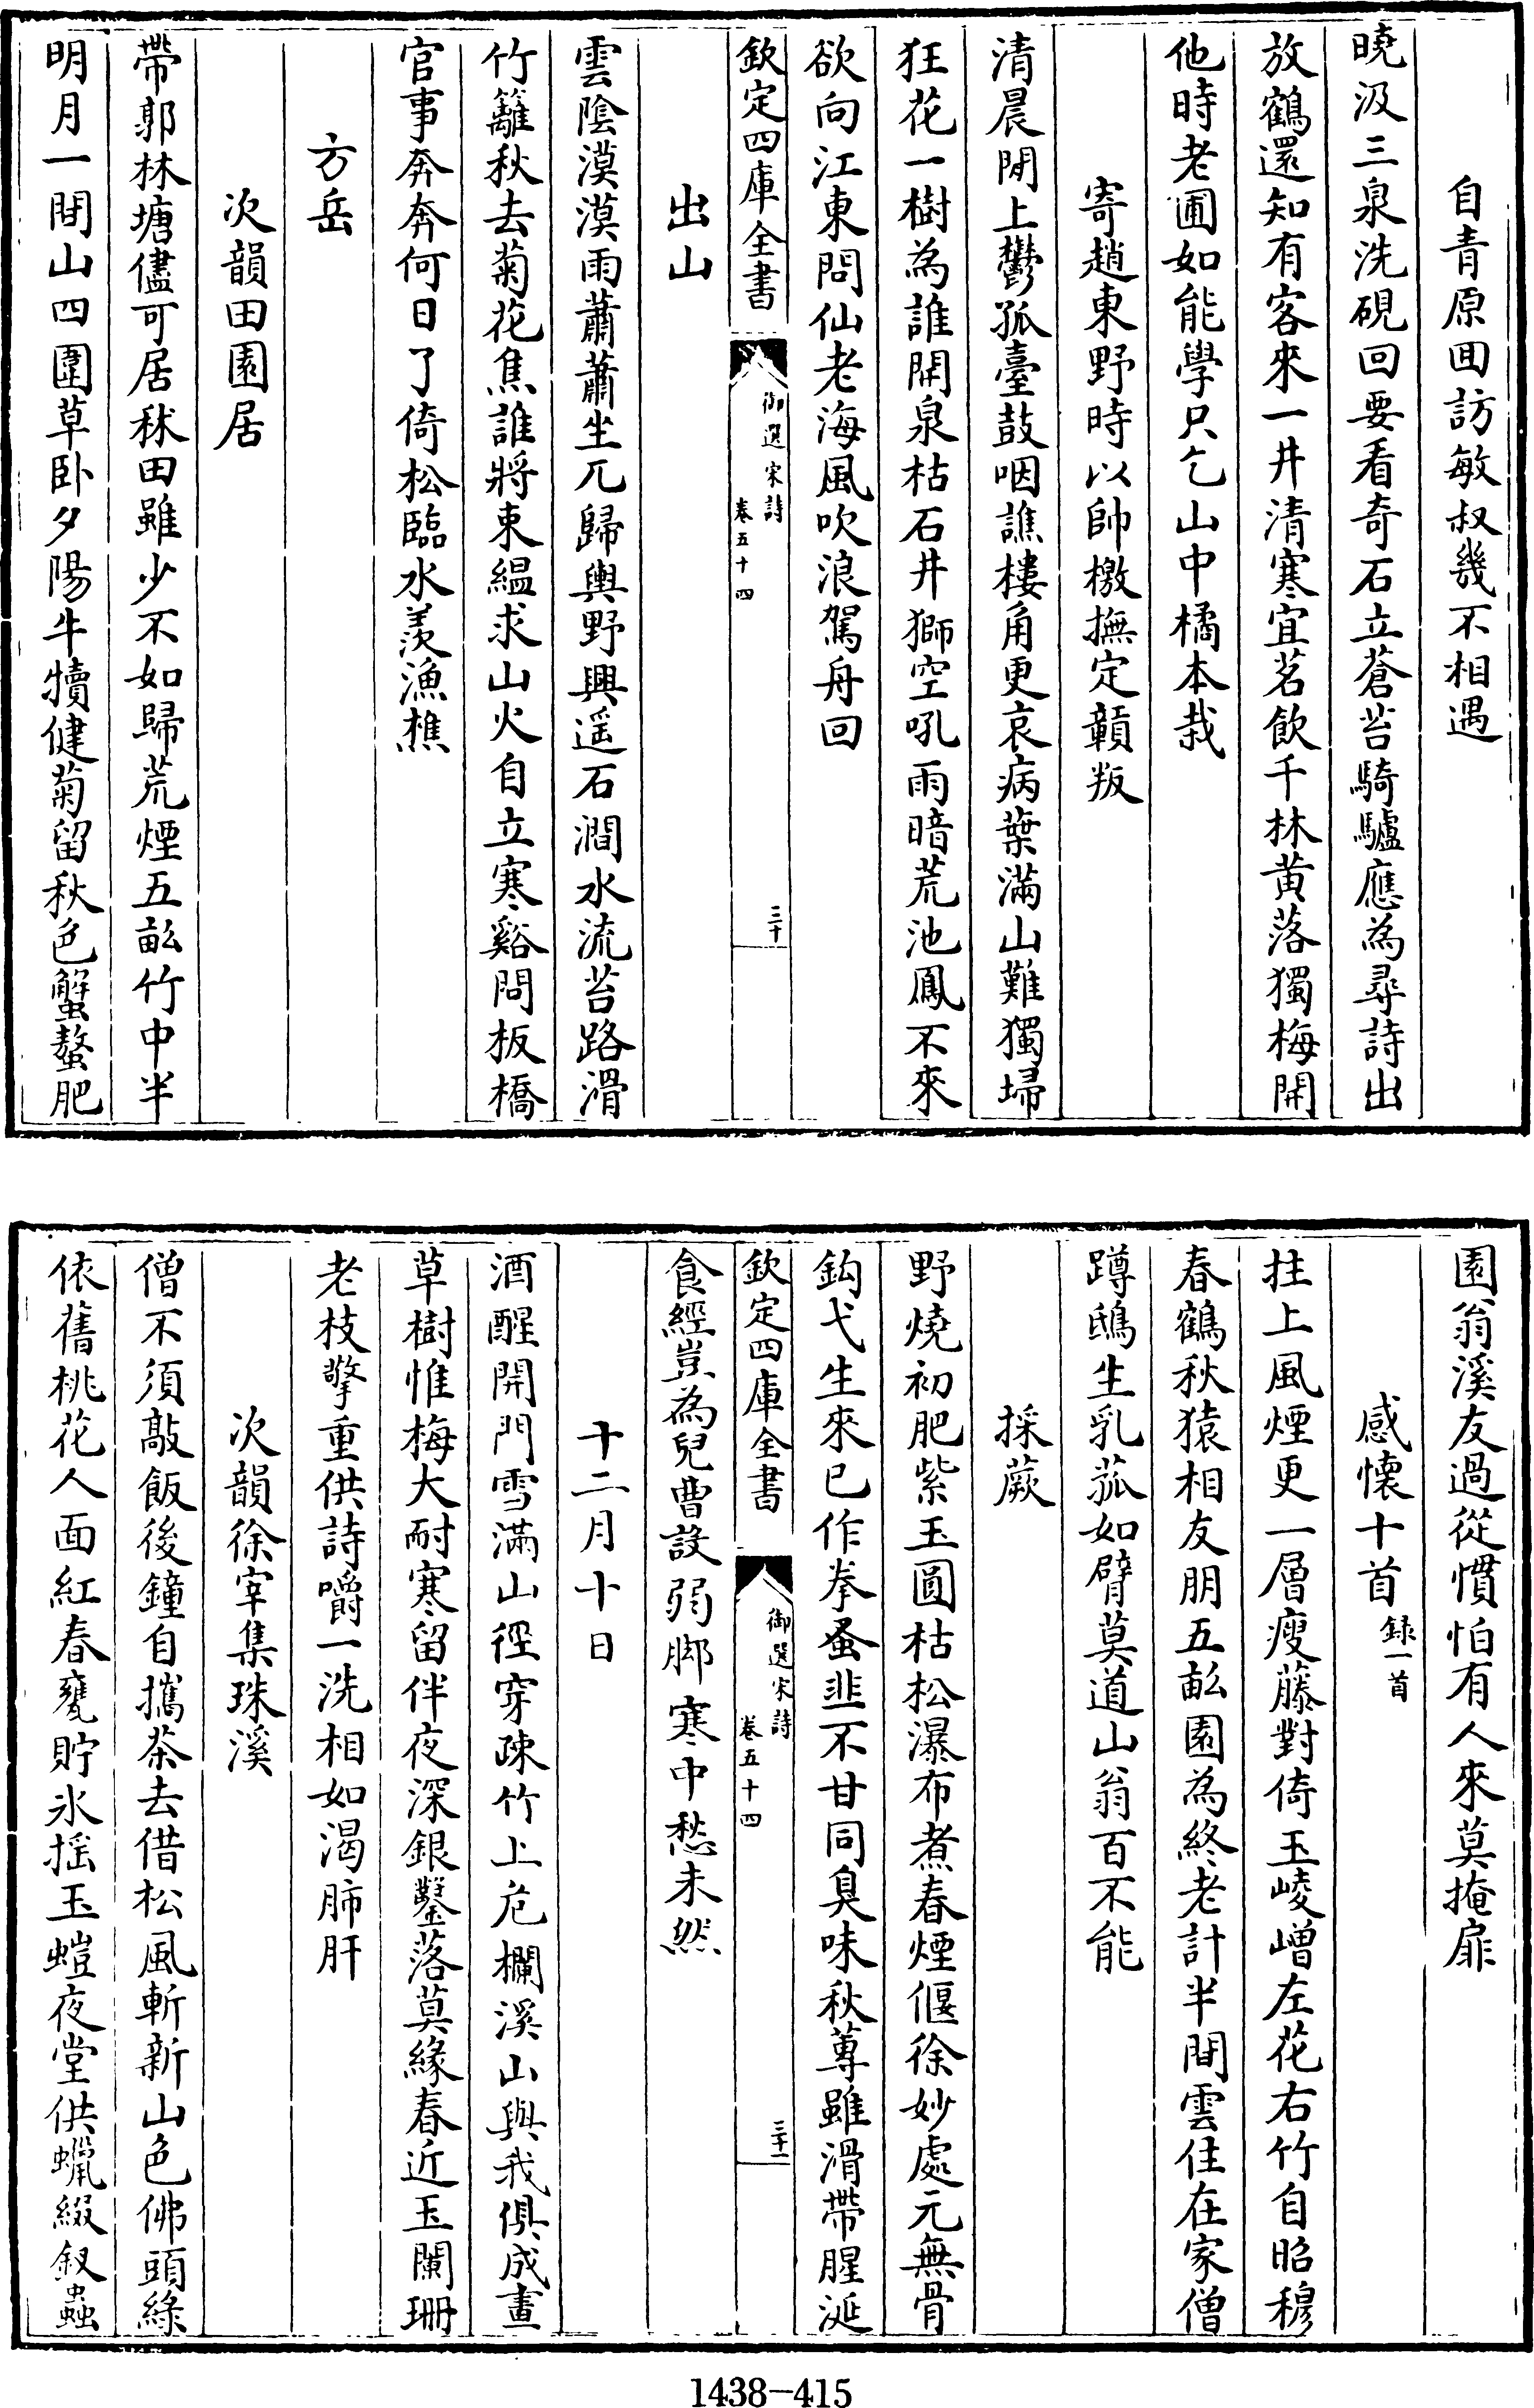 自青原回訪敏叔幾不相遇
曉汲三泉洗硯回要看奇石立蒼苔騎驢應為尋詩出
放鶴還知有客來一井清寒宜茗飲千林黄落獨梅開
他時老圃如能學只乞山中橘本栽
寄趙東野時以帥檄撫定贑叛
清晨閒上鬱孤臺鼓咽譙樓角更哀病葉滿山難獨埽
狂花一樹為誰開泉枯石井獅空吼雨暗荒池鳳不來
欲向江東問仙老海風吹浪駕舟回
欽定四庫全書
御選宋詩
卷五十四
三十
出山
雲陰漠漠雨蕭蕭坐兀歸輿野興遥石澗水流苔路滑
竹籬秋去菊花焦誰將束緼求山火自立寒谿問板橋
官事奔奔何日了倚松臨水羨漁樵
方岳
次韻田園居
帶郭林塘儘可居秫田雖少不如歸荒煙五畝竹中半
明月一間山四圍草卧夕陽牛犢健菊留秋色蟹螯肥
園翁溪友過從慣怕有人來莫掩扉
感懷十首
録一首
拄上風煙更一層瘦藤對倚玉崚嶒左花右竹自昭穆
春鶴秋猿相友朋五畝園為終老計半間雲住在家僧
蹲鴟生乳菰如臂莫道山翁百不能
採蕨
野燒初肥紫玉圓枯松瀑布煮春煙偃徐妙處元無骨
鈎弋生來已作拳蚤韭不甘同臭味秋蓴雖滑帶腥涎
欽定四庫全書
御選宋詩
卷五十四
三十一
食經豈為兒曹設弱脚寒中愁未然
十二月十日
酒醒開門雪滿山徑穿疎竹上危欄溪山與我俱成畫
草樹惟梅大耐寒留伴夜深銀鑿落莫緣春近玉闌珊
老枝擎重供詩嚼一洗相如渴肺肝
次韻徐宰集珠溪
僧不須敲飯後鐘自攜茶去借松風斬新山色佛頭緑
依舊桃花人面紅春甕貯氷揺玉螘夜堂供蠟綴釵蟲
1438-415